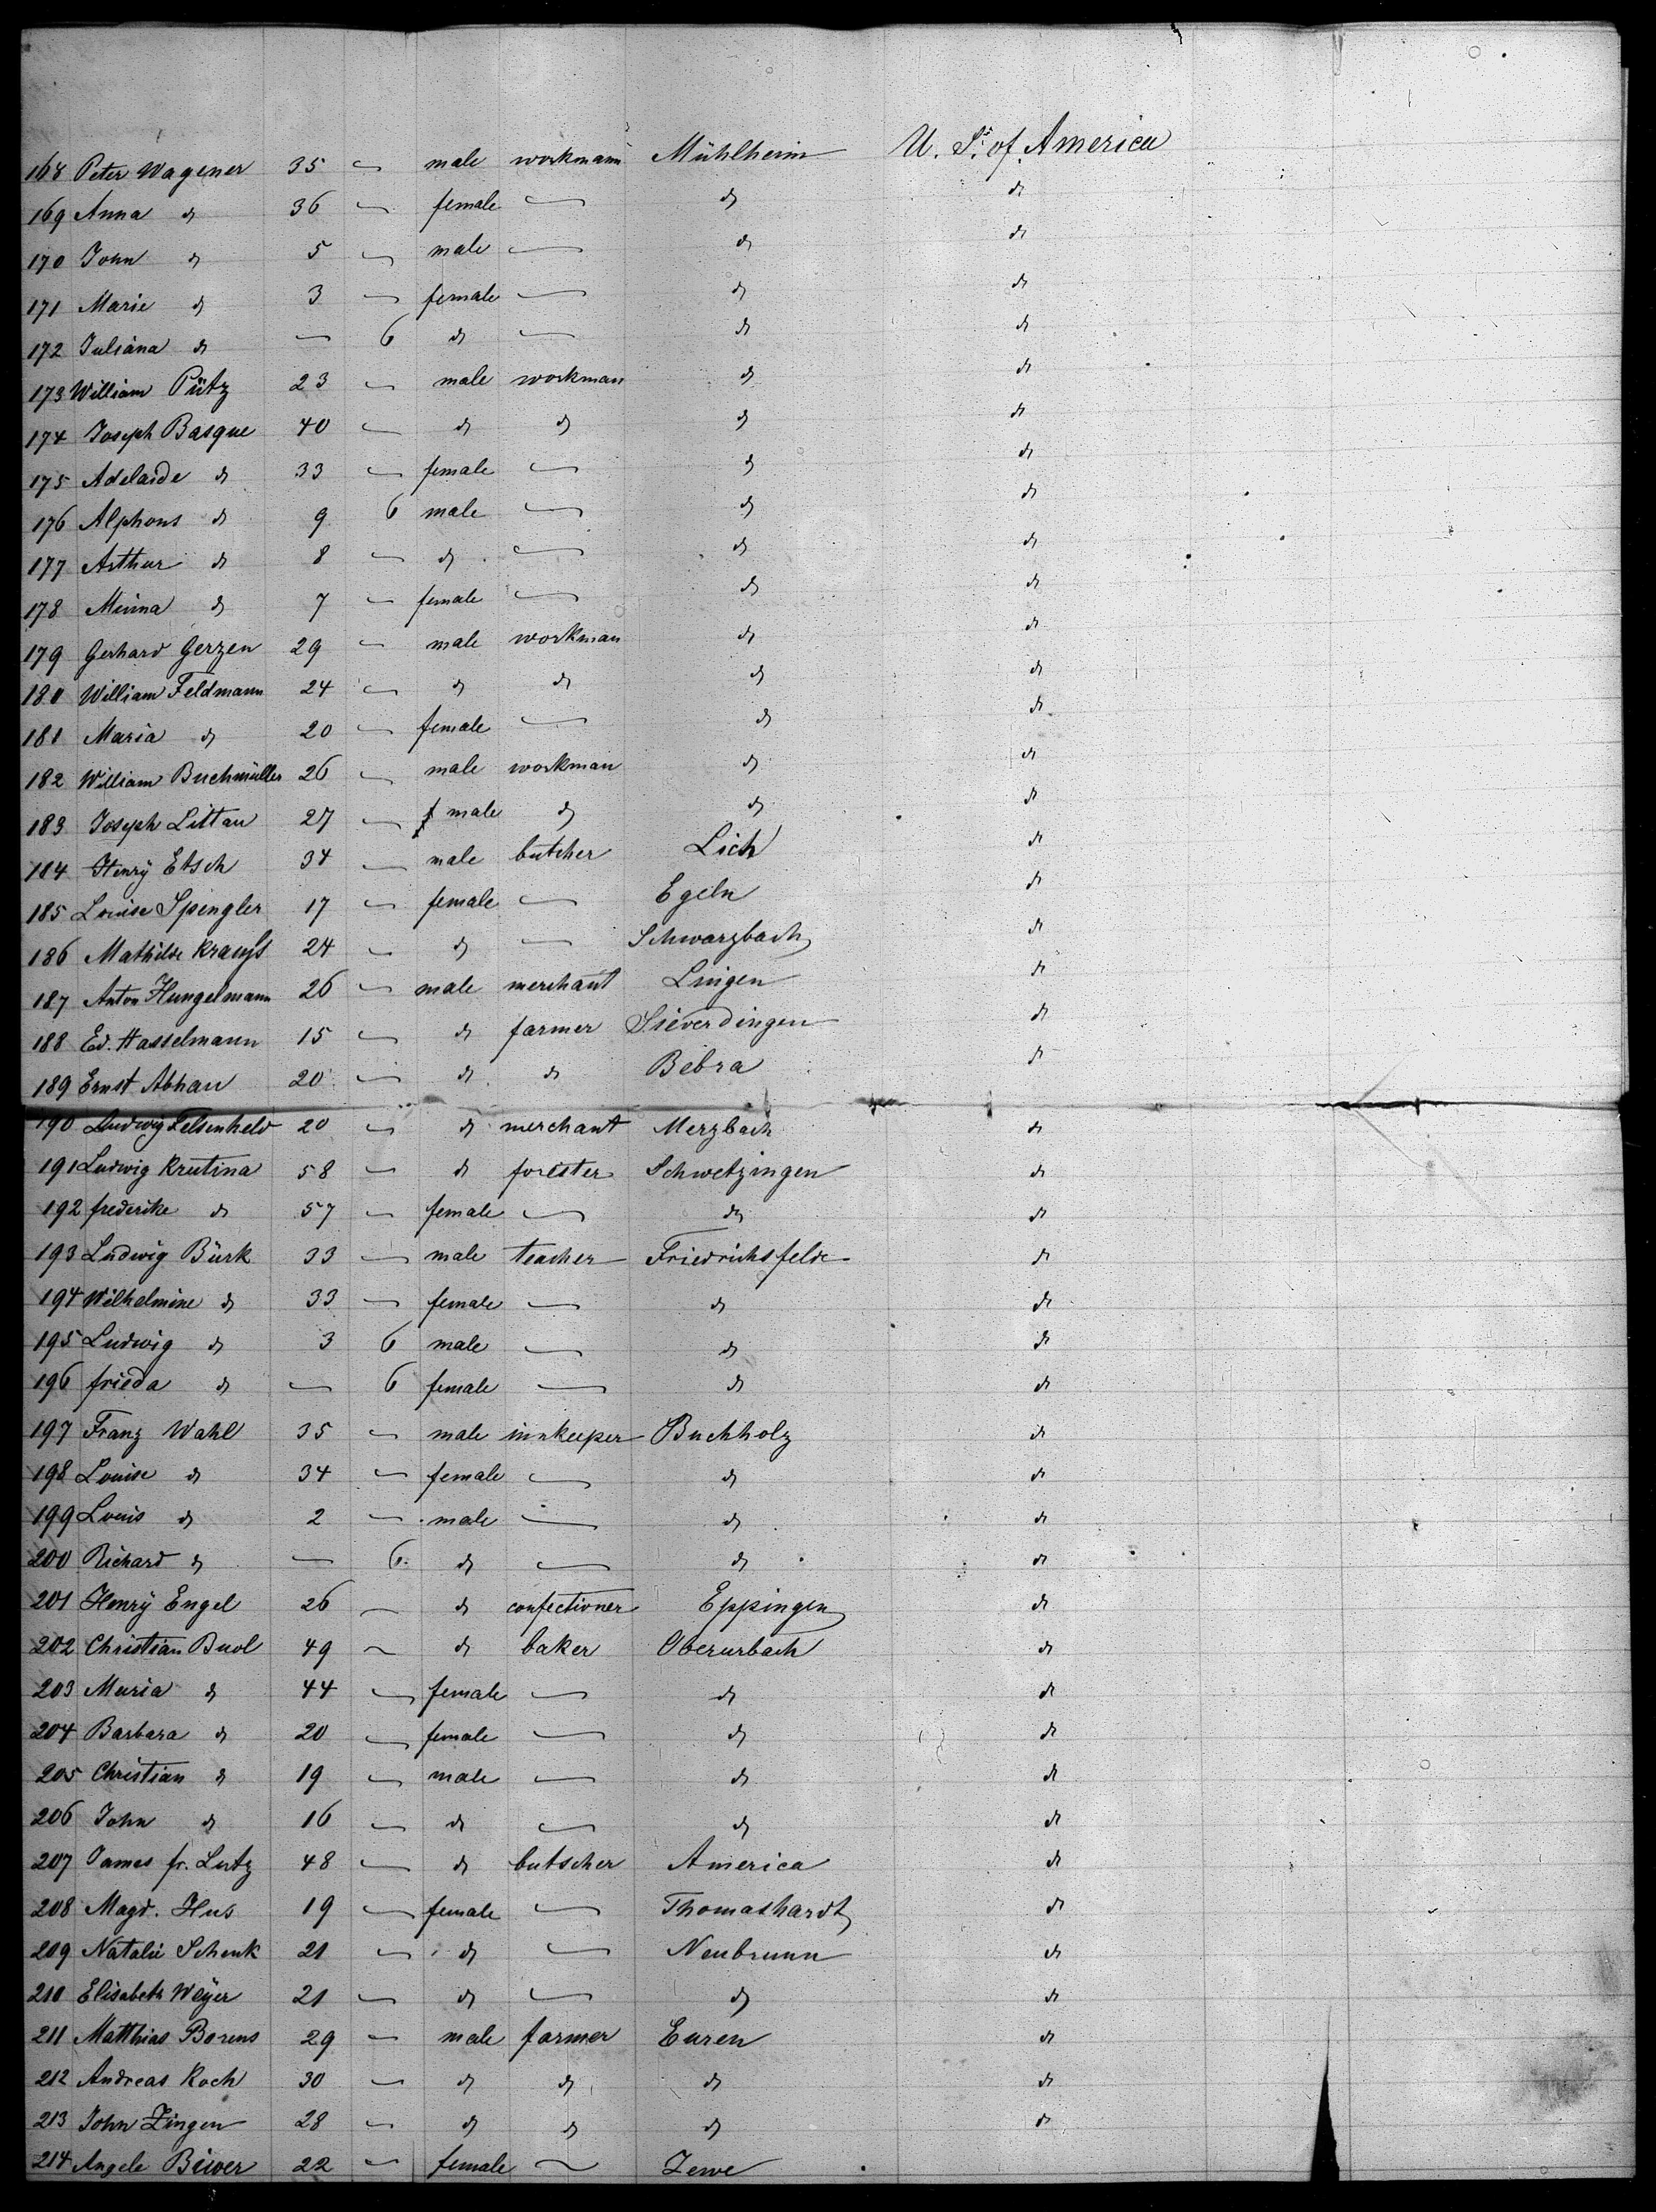 168 Peter Wagener 35 — male workmann Mühlheim U. St. of America
169 Anna do 36 — female — do do
170 John do 5 — male — do do
171 Marie do 3 — female — do do
172 Juliana do — 6 do — do do
173 William Pütz 23 — male workman do do
174 Joseph Basque 40 — do do do do
175 Adelaide do 33 — female — do do
176 Alphons do 9 6 male — do do
177 Arthur do 8 — do — do do
178 Minna do 7 — female — do do
179 Gerhard Gerzen 29 — male workman do do
180 William Feldmann 24 — do do do do
181 Maria do 20 — female — do do
182 William Buchmüller 26 — male workman do do
183 Joseph Littau 27 — male do do do
184 Henry Etsch 34 — male butcher Lich do
185 Louise Spengler 17 — female — Egeln do
186 Mathilde Krauß 24 — do — Schwarzbach do
187 Anton Hungelmann 26 — male merchant Lingen do
188 Ed. Hasselmann 15 — do farmer Sieverdingen do
189 Ernst Abhau 20 — do do Bebra do
190 Ludwig Felsenheld 20 — do merchant Merzbach do
191 Ludwig Krutina 58 — do forester Schwetzingen do
192 frederike do 57 — female — do do
193 Ludwig Bürk 33 — male teacher Friedrichsfelde do
194 Wilhelmine do 33 — female — do do
195 Ludwig do 3 6 male — do do
196 frieda do — 6 female — do do
197 Franz Wahl 35 — male innkeeper Buchholz do
198 Louise do 34 — female — do do
199 Louis do 2 — male — do do
200 Richard do — 6 do — do do
201 Henry Engel 26 — do confectioner Eppingen do
202 Christian Buol 49 — do baker Oberurbach do
203 Maria do 44 — female — do do
204 Barbara do 20 — female — do do
205 Christian do 19 — male — do do
206 John do 16 — do — do do
207 James fr. Lutz 48 — do butscher America do
208 Magd. Hus 19 — female — Thomashardt do
209 Natalie Schenk 21 — do — Neubrunn do
210 Elisabeth Weyer 21 — do — do do
211 Matthias Borens 29 — male farmer Euren do
212 Andreas Koch 30 — do do do do
213 John Zingen 28 — do do do do
214 Angele Biwer 22 — female — Zewe